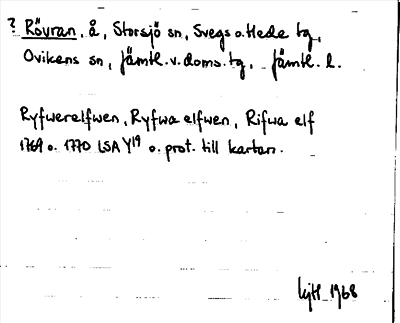 ? Rövran, å, Storsjö sn, Svegs o. Hede tg,
Ovikens sn, Jämtl. v. doms. tg, Jämtl. l.
Ryfwerelfwen, Ryfwa elfwen, Rifwa elf
1769 o. 1770 LSA Y19 o. prot. till kartan.
1968